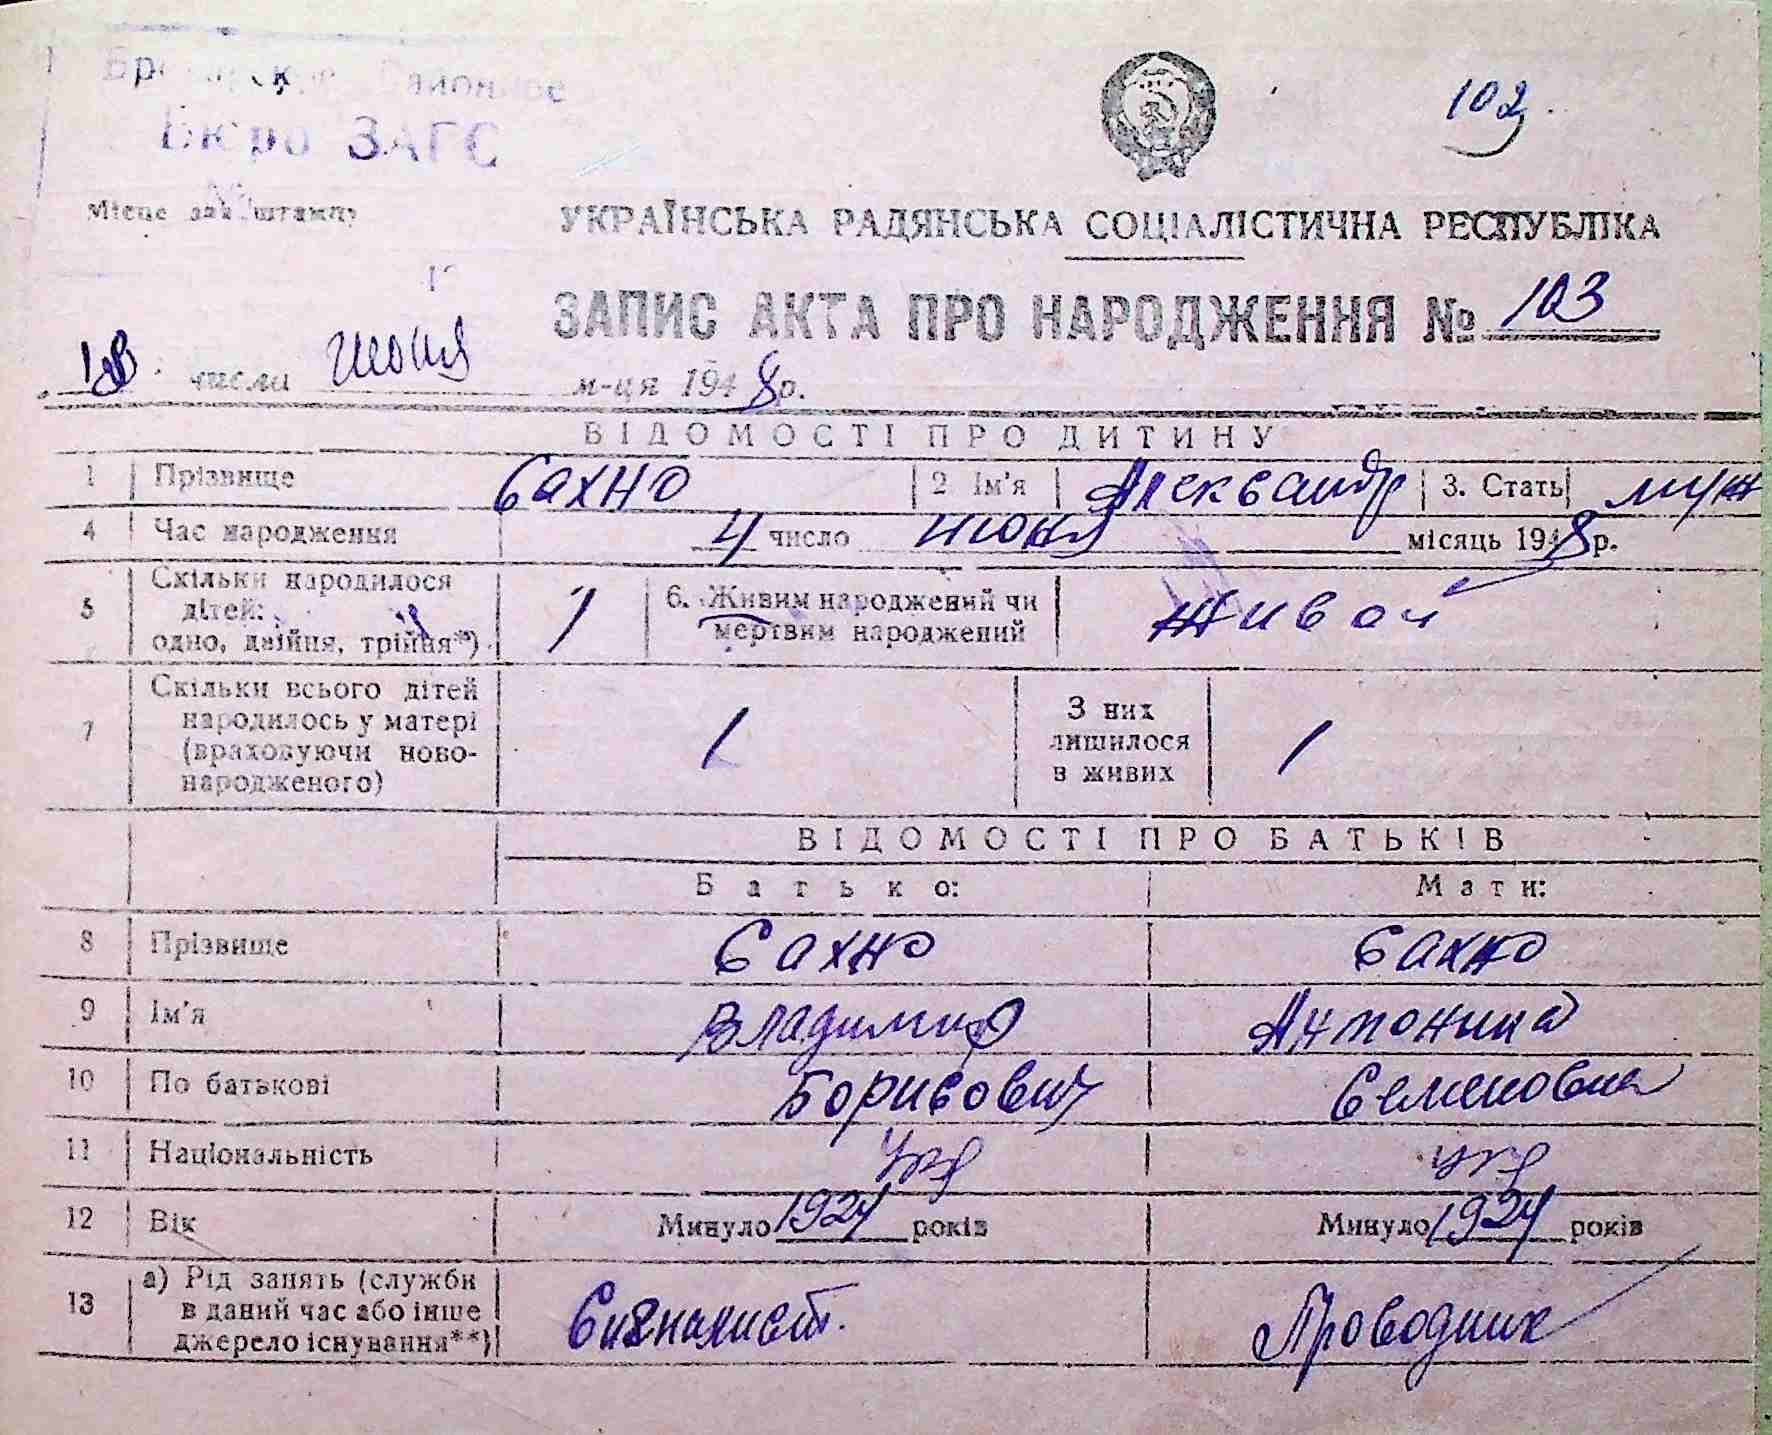 Бюро ЗАГС
102
Місце для штампу
УКРАЇНСЬКА РАДЯНСЬКА СОЦІАЛІСТИЧНА РЕСПУБЛІКА
ЗАПИС АКТА ПРО НАРОДЖЕННЯ № 103
числа июня м-ця 1948 р.
ВІДОМОСТІ ПРО ДИТИНУ
1 Прізвище Сахно 2 Ім'я Александр 3. Стать муж
4 Час народження 4 число июня місяць 1948 р.
5 Скільки народилося дітей: одно, двійня, трійня*) 1 6. Живим народжений чи мертвим народжений живой
7 Скільки всього дітей народилось у матері (враховуючи новонародженого) 1 З них лишилося в живих 1
ВІДОМОСТІ ПРО БАТЬКІВ
Батько: Мати:
8 Прізвище Сахно Сахно
9 Ім'я Владимир Антонина
10 По батькові Борисович Семеновна
11 Національність Укр укр
12 Вік Минуло 1924 років Минуло 1924 років
13 а) Рід занять (служби в даний час або інше джерело існування**) Сигналист. Проводник